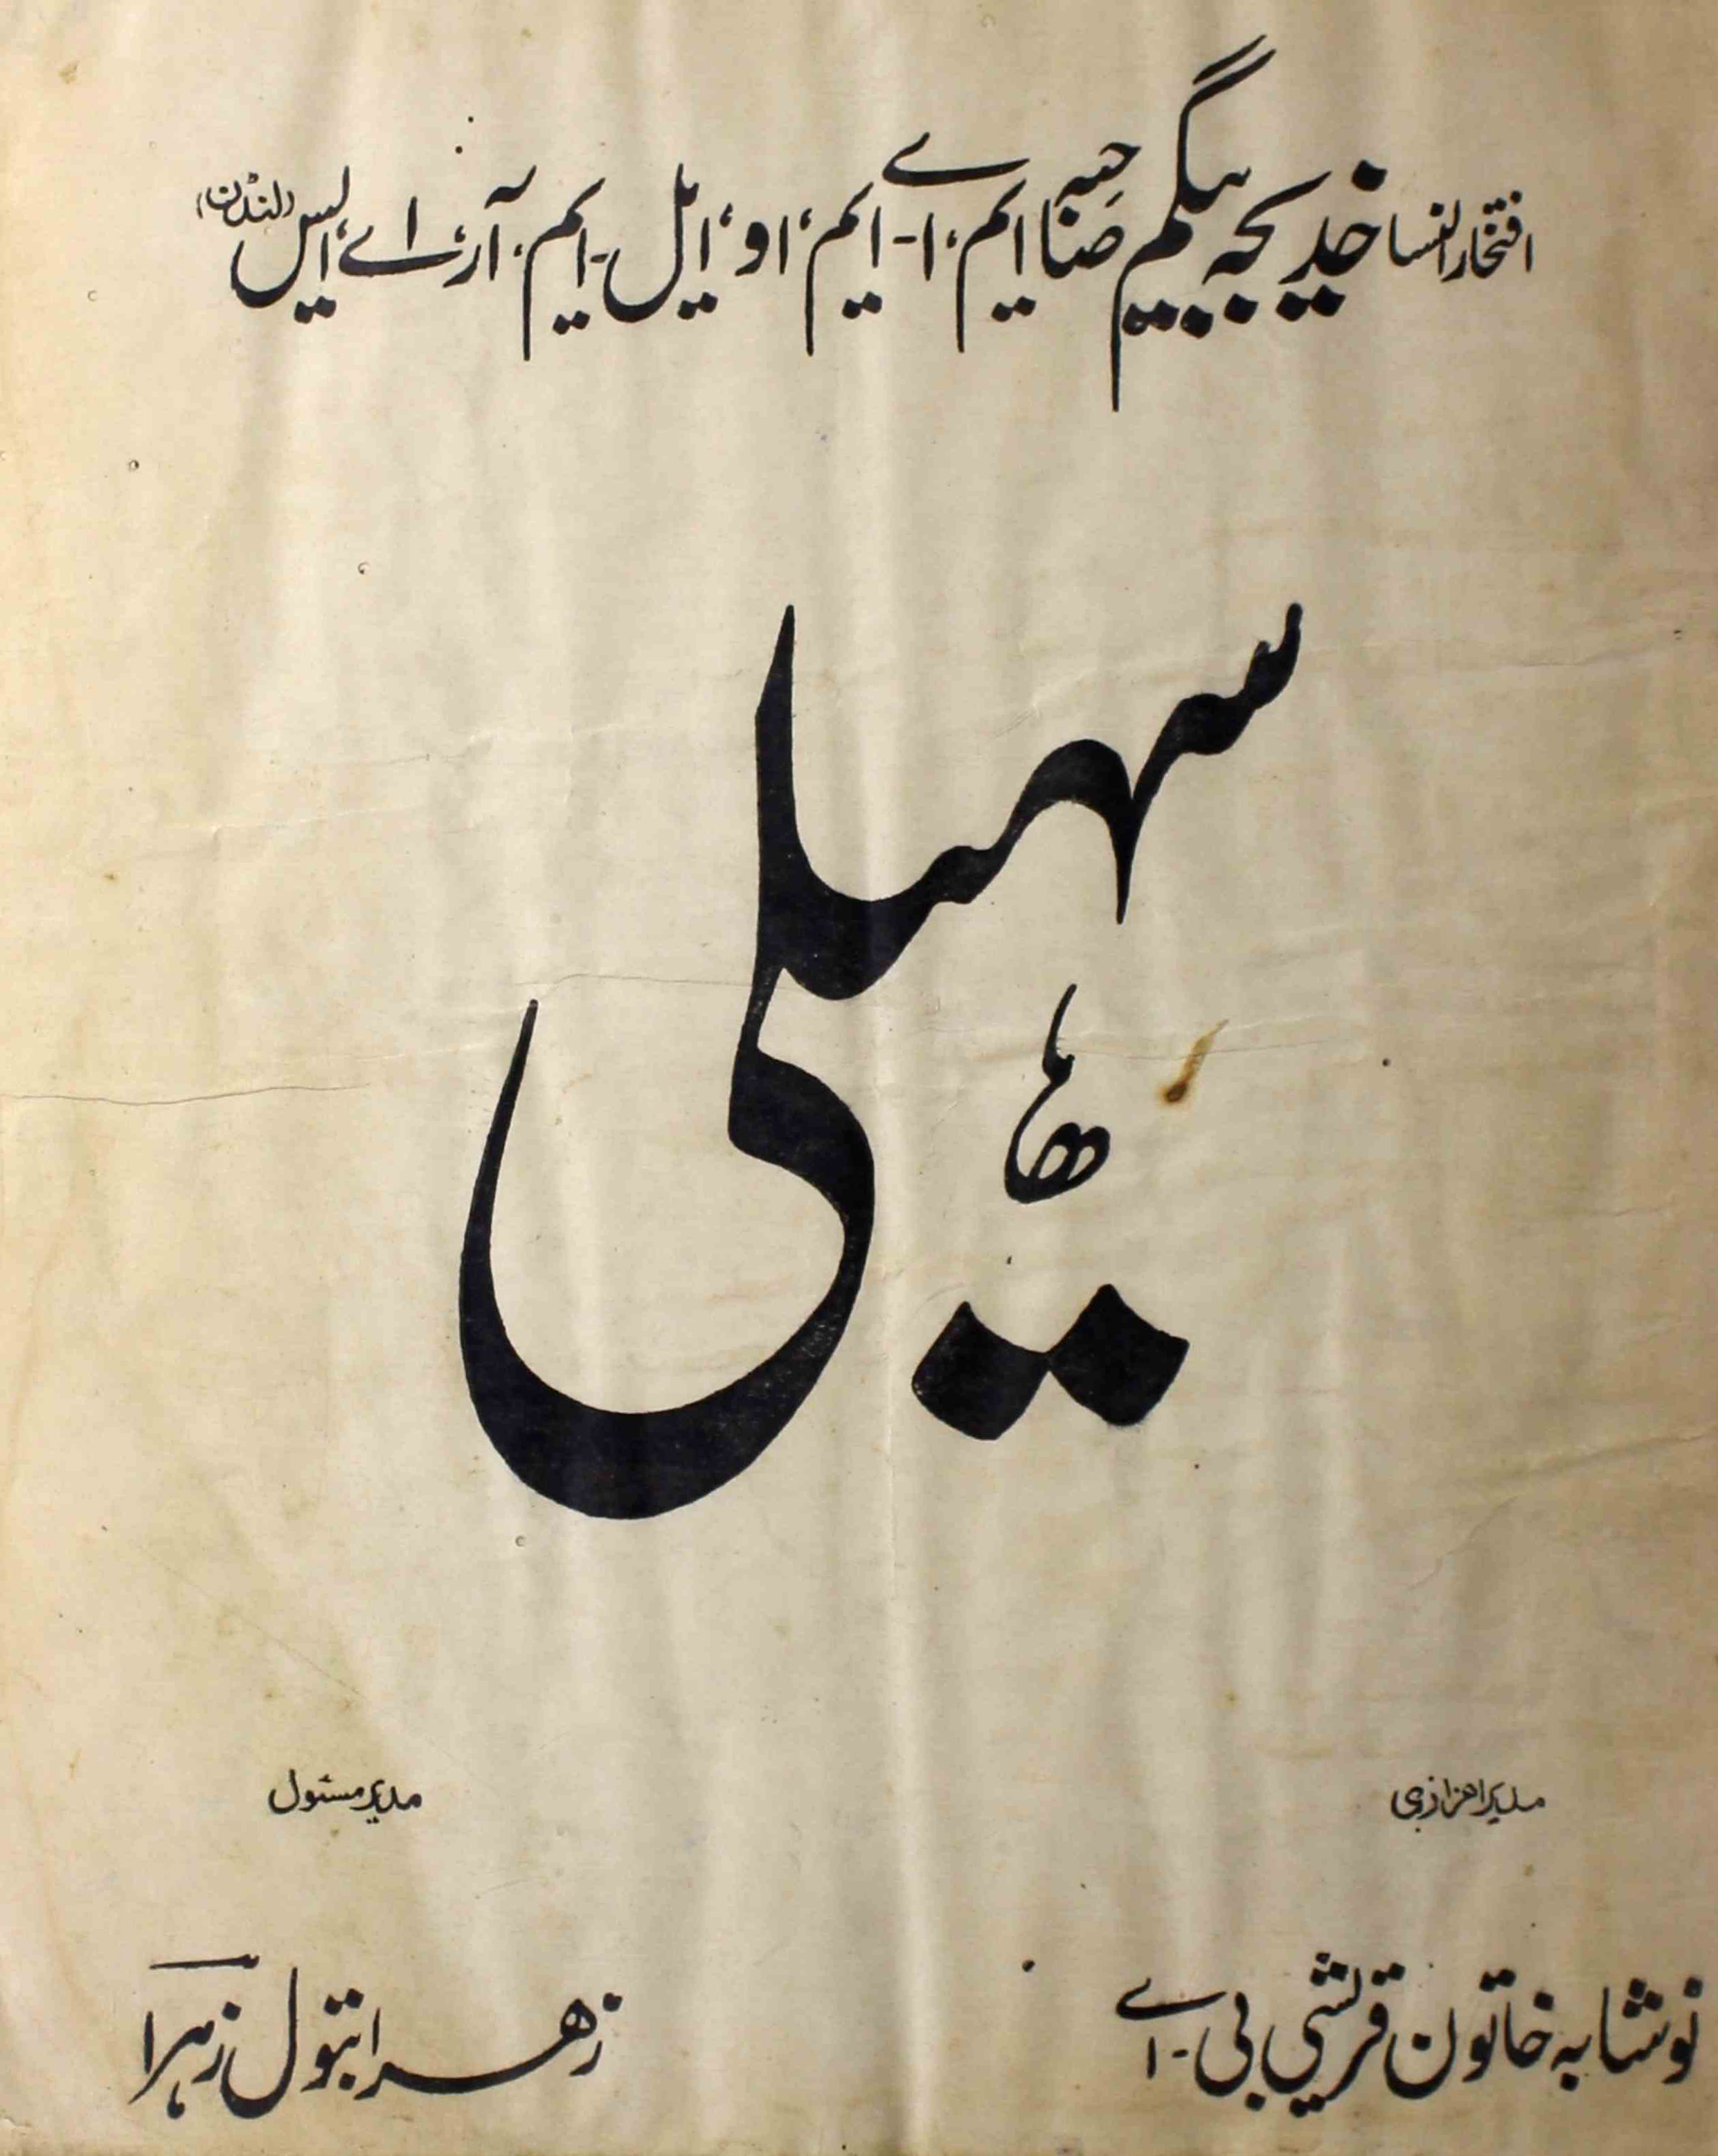 افتخار النسا خدیجہ بیگم صاحبہ ایم، اے - ایم، او، ایل - ایم، آر، اے، ایس (لنڈن)
سہیلی
مدیر اعزازی
مدیر مسئول
نوشابہ خاتون قریشی بی - اے
زھرا بتول زہرا